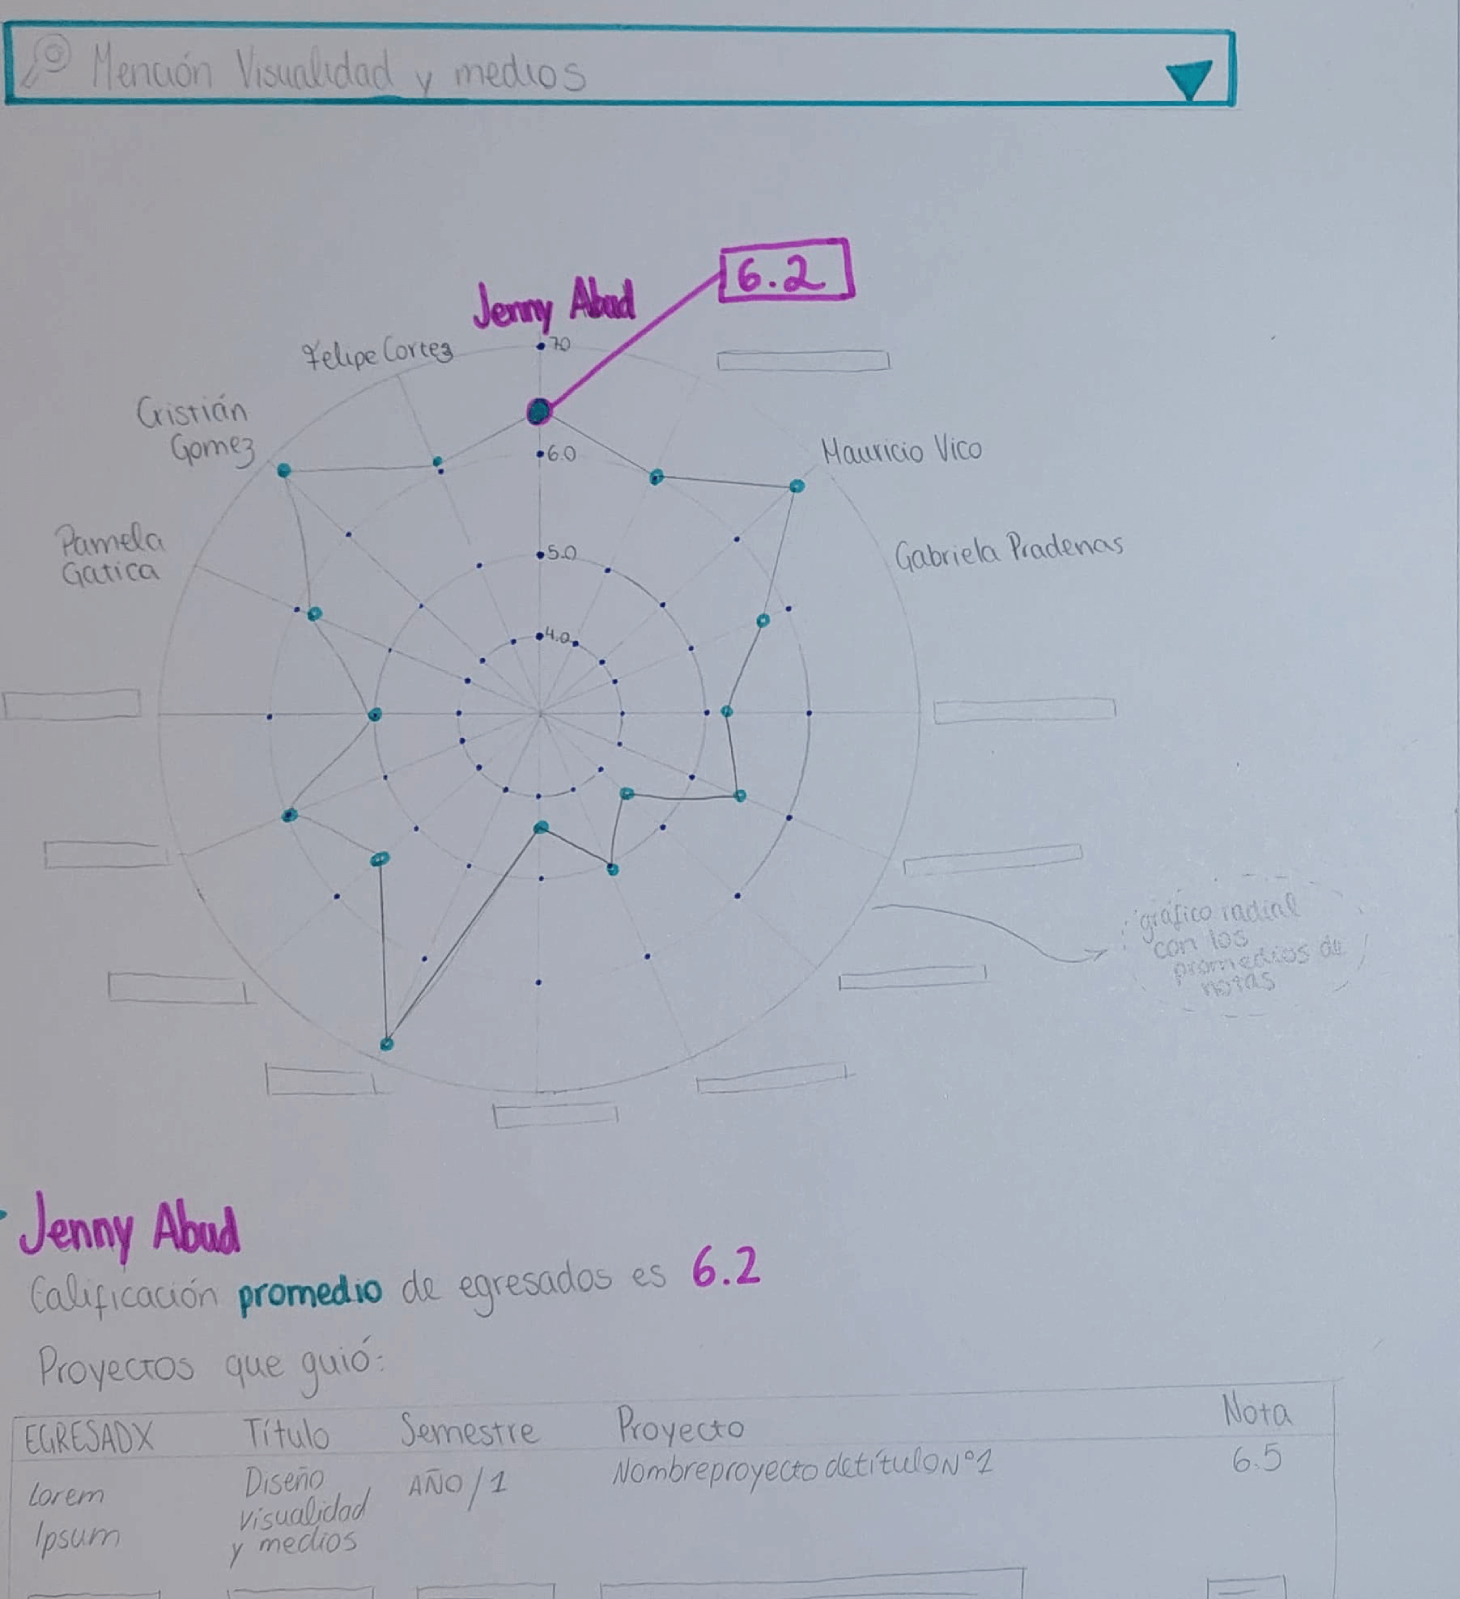 Mención Visualidad y medios
6.2
Jenny Abud
7.0
Felipe Cortez
Cristián
Gomez
6.0
Mauricio Vico
Pamela
Gatica
5.0
Gabriela Pradenas
4.0
gráfico radial
con los
promedios de
notas
Jenny Abud
Calificación promedio de egresados es 6.2
Proyectos que guió:
EGRESADX Título Semestre Proyecto Nota
Lorem
Ipsum
Diseño
visualidad
y medios
AÑO/1
Nombre proyecto de título N°1
6.5